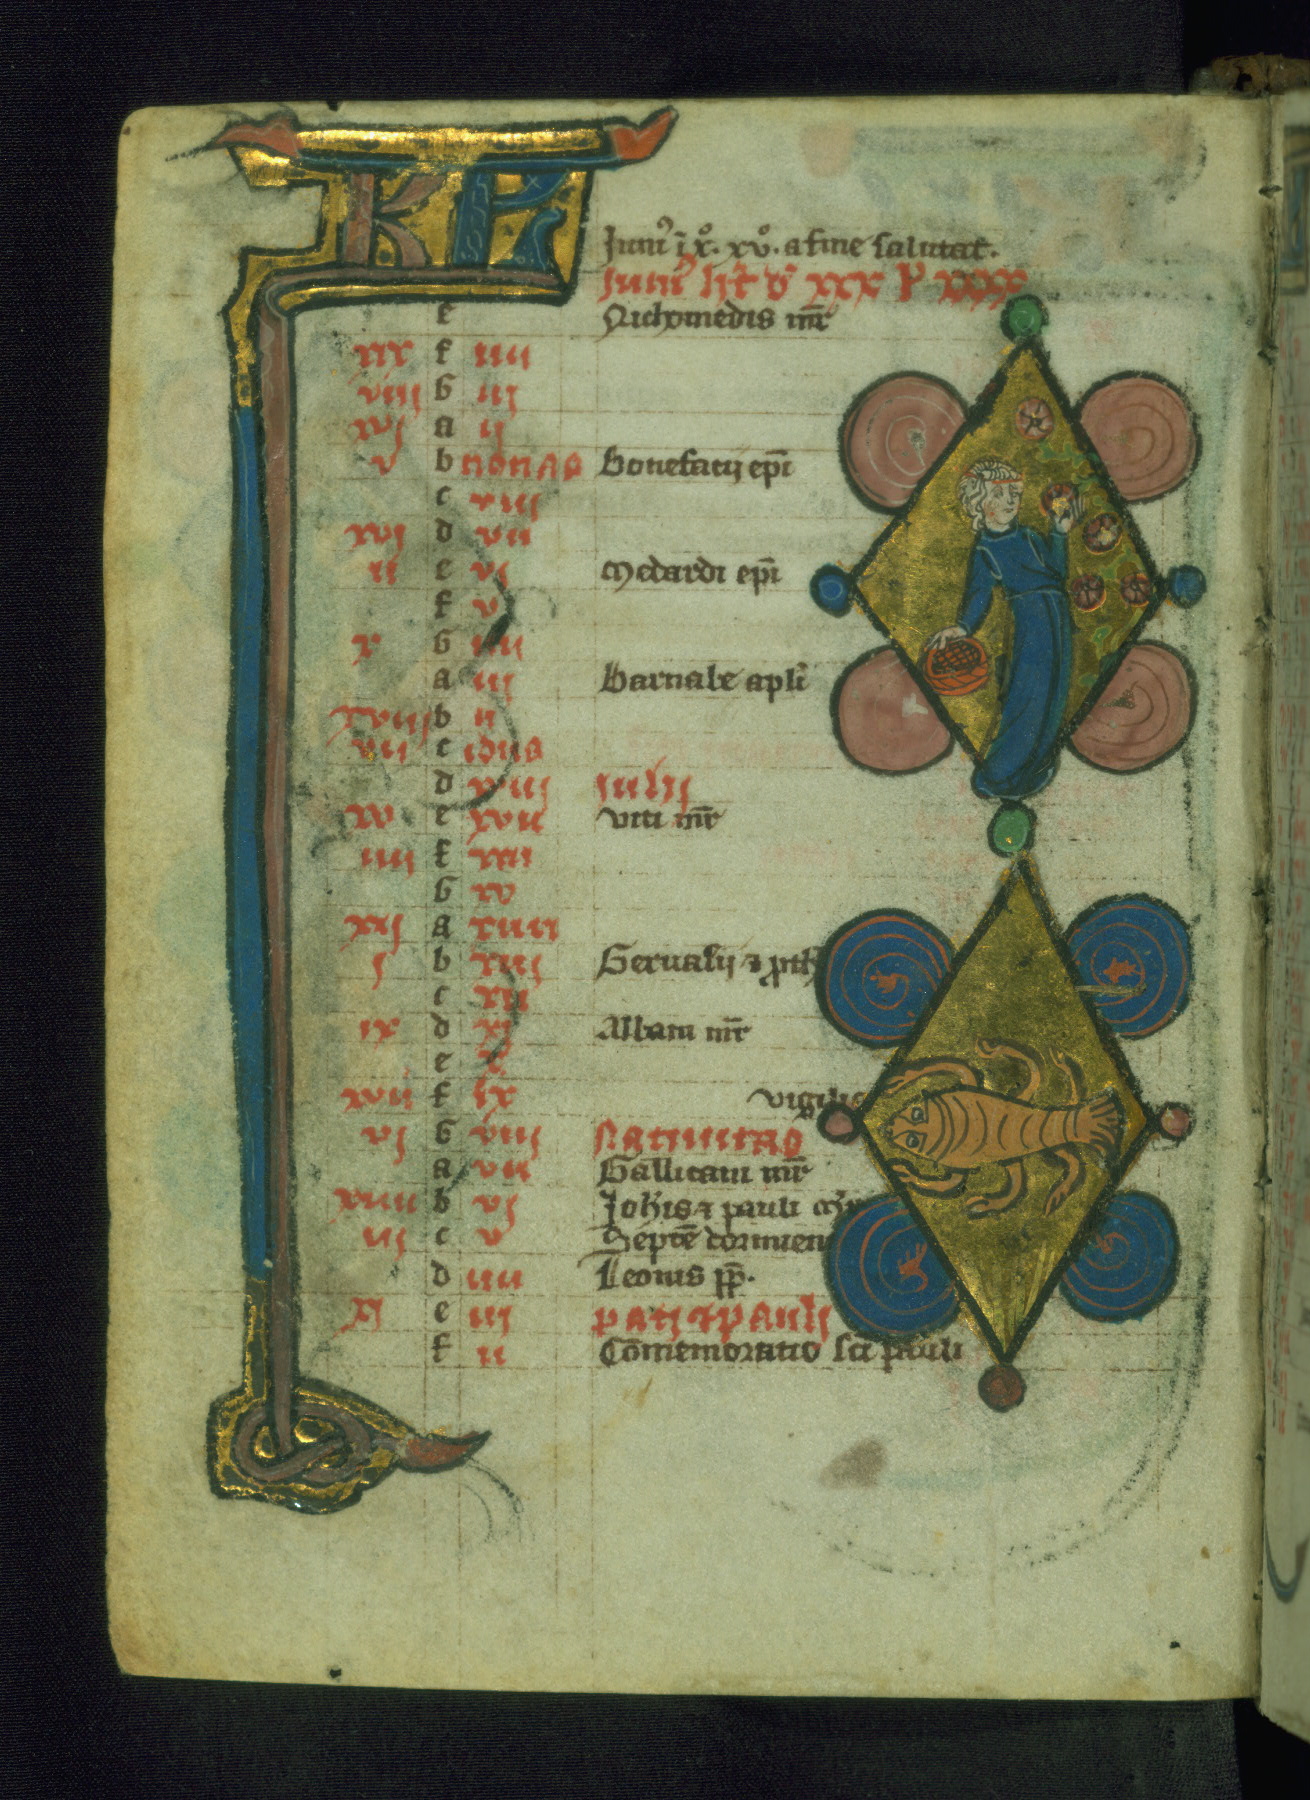 KL
Juni' i x°. xv°. a fine salutat.
Juni' h't d' xxx l' xxxx
e Nichomedis mr
xix f iiii
viii G iij
xvj a ij
v b nonas Bonefacij epi
c viij
xvj d vii
ii e vj Medardi epi
f v
x G iiii
a iij Barnabe apli
xviij b ii
vii c idus
d xviij Julij
xv e xvii Viti mr
iiij f xvi
G xv
xij a xiiii
b xiij Geruasij &
j c xii
ix d xj Albani mr
e x
xvii f ix vigilia
vj G viij Natiuitas
a vii Gallicani mr
xiiii b vj Joh'is & pauli
iij c v Septe dormien
d iiii Leonis pp.
xj e iij petri & pauli
f ii Comemoratio sci pauli